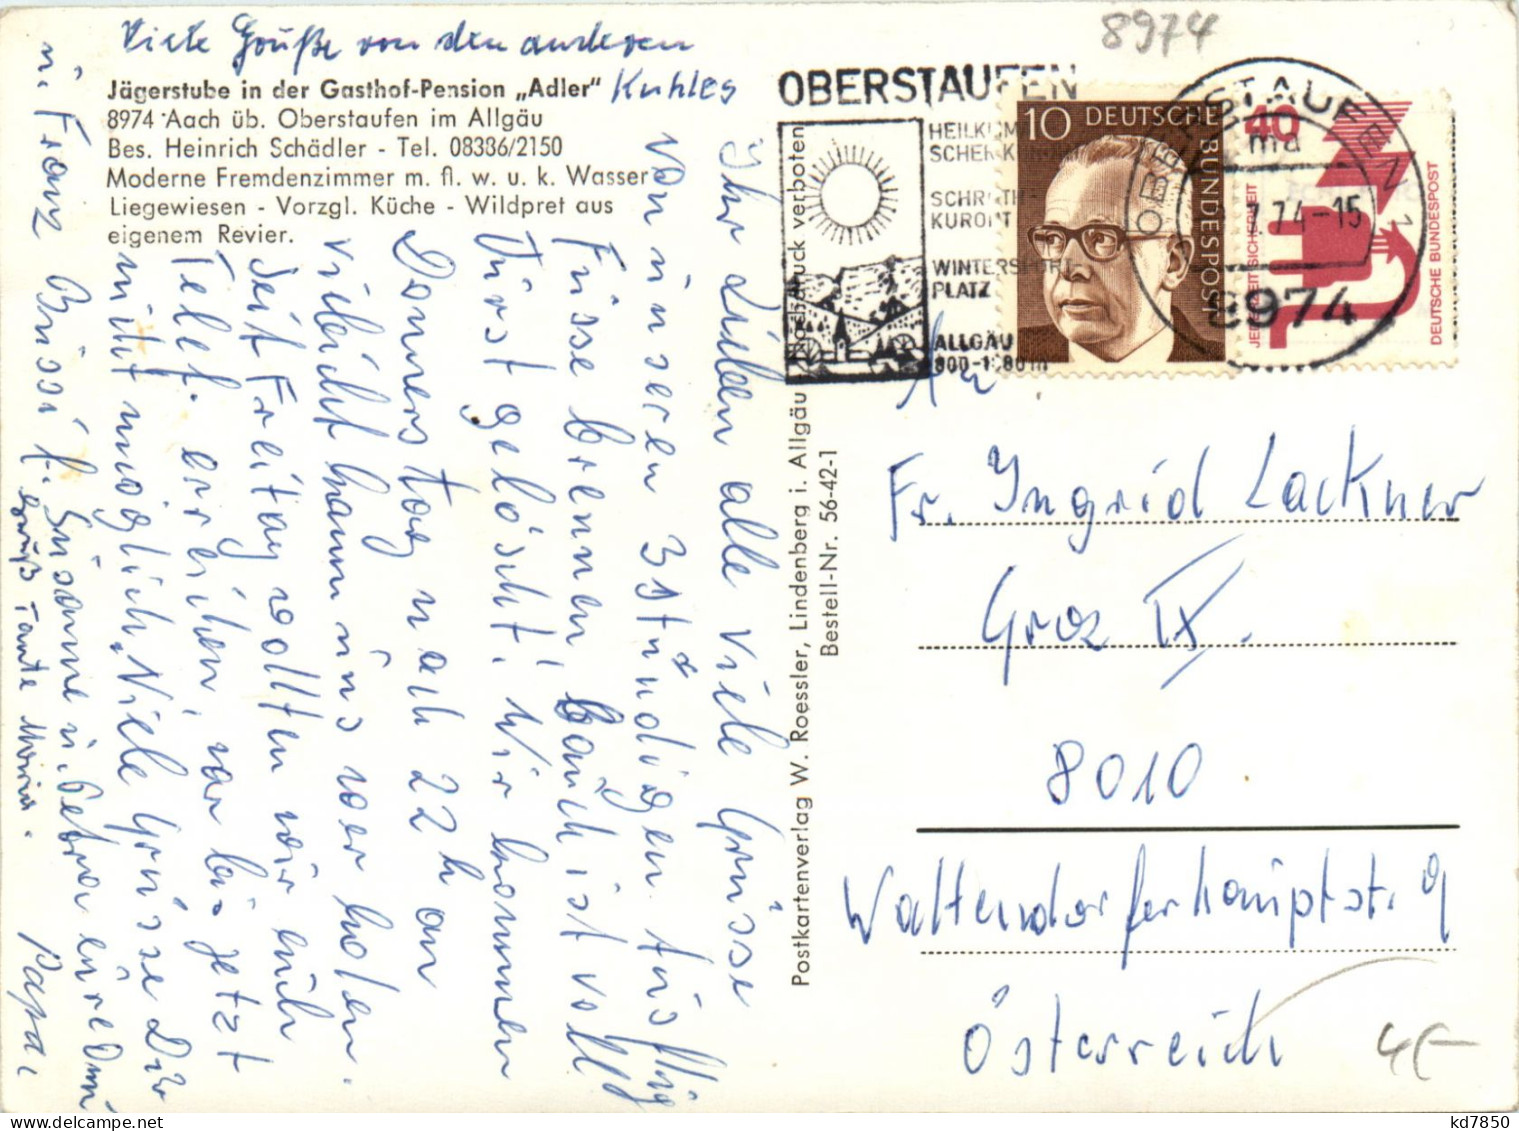 Viele Grüße von den anderen
Kuhles
Jägerstube in der Gasthof-Pension „Adler“
8974 Aach üb. Oberstaufen im Allgäu
Bes. Heinrich Schädler - Tel. 08386/2150
Moderne Fremdenzimmer m. fl. w. u. k. Wasser
Liegewiesen - Vorzgl. Küche - Wildpret aus
eigenem Revier.
Ihr Lieben alle viele Grüsse
von unseren 3stündigen
Füsse brennen, Bauch ist voll
Durst gelöscht. Wir kommen
Donnerstag nach 22 h an
vileicht kann uns wer holen.
Seit Freitag wollten wir euch
Telef. erreichen, war bis jetzt
nicht möglich. Viele Grüsse Dir
u. Franz Bussi f. Susanne u. Petra eure
Gruß Tante Maria.
Papa
Postkartenverlag W. Roessler, Lindenberg i. Allgäu
Nachdruck verboten
Bestell-Nr. 56-42-1
8974
OBERSTAUFEN
SCHROTH-
KURORT
WINTERSPORT-
PLATZ
ALLGÄU
10 DEUTSCHE
BUNDESPOST
40
JEDERZEIT SICHERHEIT
DEUTSCHE BUNDESPOST
OBERSTAUFEN 1
ma
7.74-15
8974
An
Fr. Ingrid Lackner
Graz IX.
8010
Waltendorferhauptstr. 9
Österreich
4€
kd7850